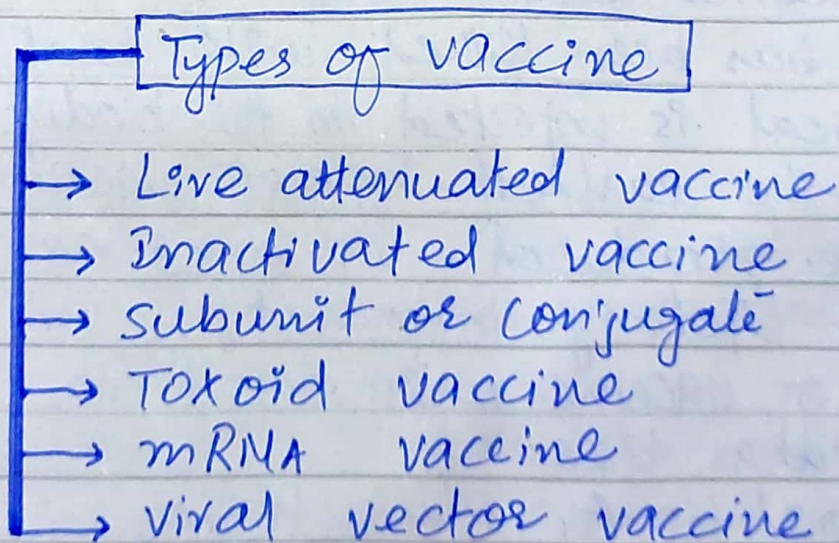 Types of vaccine
→ Live attenuated vaccine
→ Inactivated vaccine
→ subunit or conjugate
→ Toxoid vaccine
→ mRNA vaccine
→ viral vector vaccine